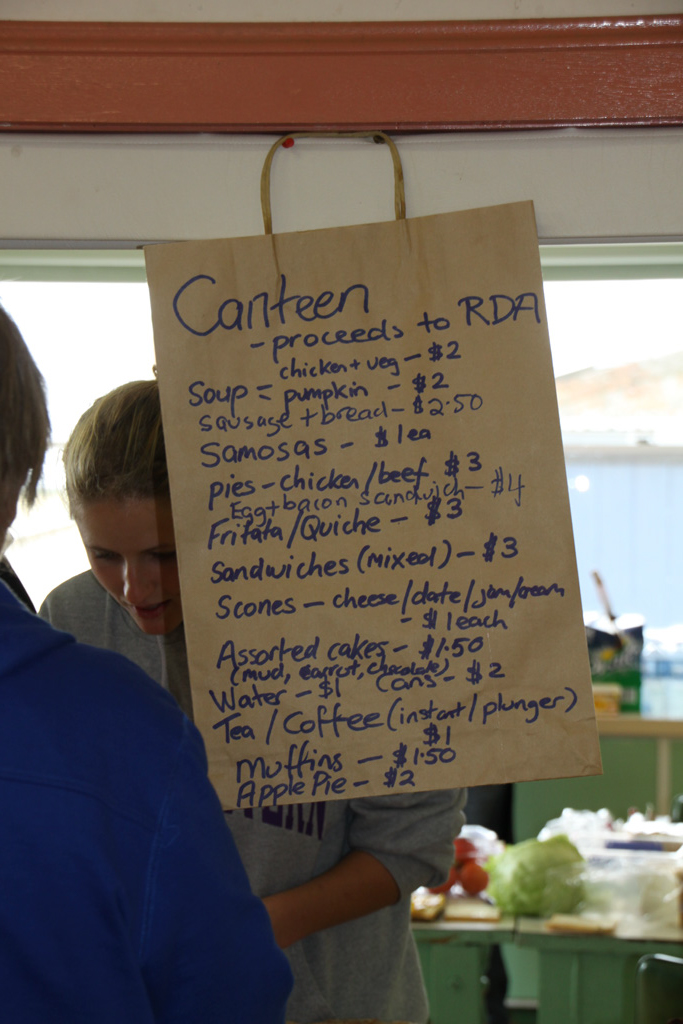 Canteen
- proceeds to RDA
chicken + veg - $2
Soup = pumpkin - $2
sausage + bread - $2.50
Samosas - $1ea
pies - chicken/beef $3
Egg+bacon sandwich - $4
Fritata/Quiche - $3
Sandwiches (mixed) - $3
Scones - cheese/date/jam/cream
- $1 each
Assorted cakes - $1.50
(mud, carrot, chocolate)
Water - $1 Cans - $2
Tea / Coffee (instant / plunger)
$1
Muffins - $1.50
Apple Pie - $2